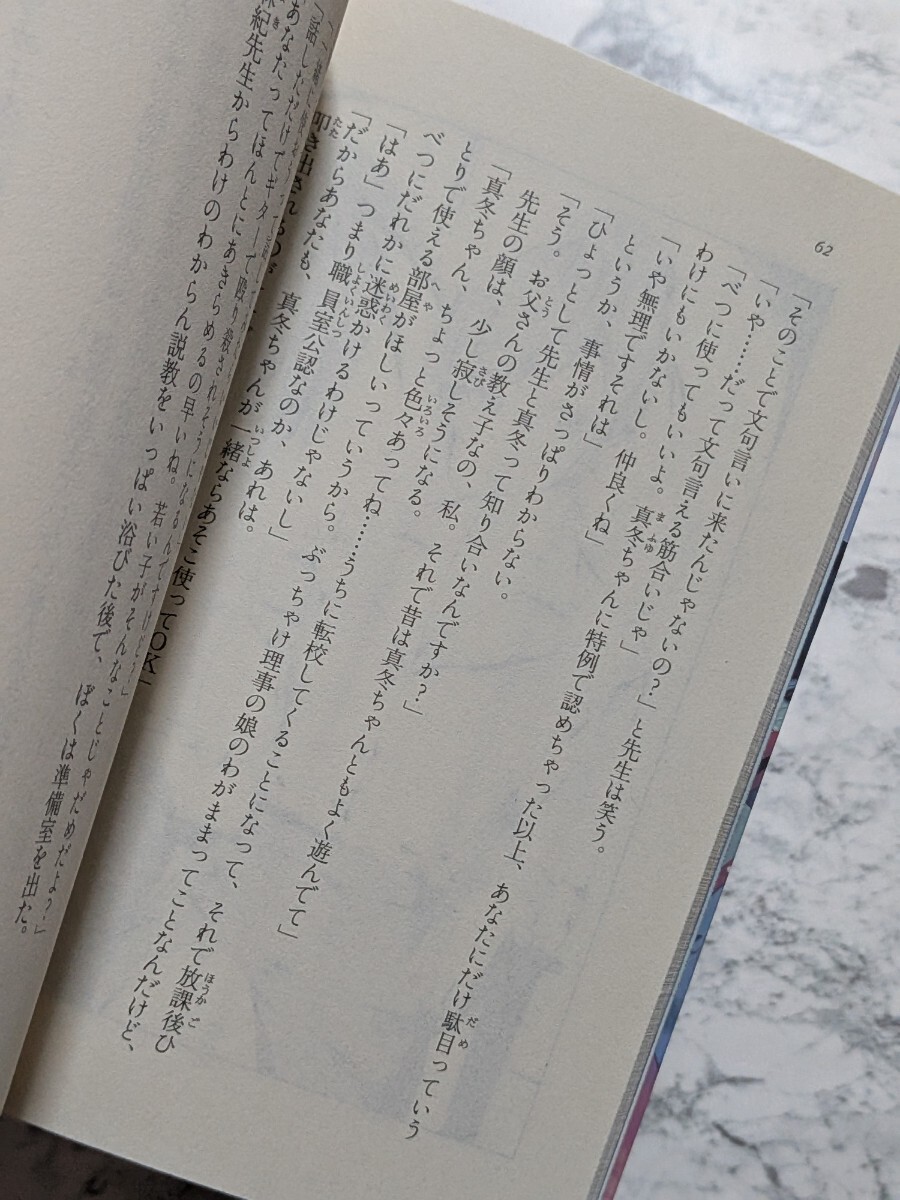 62
「そのことで文句言いに来たんじゃないの？」と先生は笑う。
「いや……だって文句言える筋合いじゃ」
「べつに使ってもいいよ。真冬ちゃんに特例で認めちゃった以上、あなたにだけ駄目っていう
わけにもいかないし。仲良くね」
「いや無理ですそれは」
というか、事情がさっぱりわからない。
「ひょっとして先生と真冬って知り合いなんですか？」
「そう。お父さんの教え子なの、私。それで昔は真冬ちゃんともよく遊んでて」
先生の顔は、少し寂しそうになる。
「真冬ちゃん、ちょっと色々あってね……うちに転校してくることになって、それで放課後ひ
とりで使える部屋がほしいっていうから。ぶっちゃけ理事の娘のわがままってことなんだけど、
べつにだれかに迷惑かけるわけじゃないし」
「はあ」つまり職員室公認なのか、あれは。
「だからあなたも、真冬ちゃんが一緒ならあそこ使ってOK」
叩き出される
「話しただけでギターで殴り殺されそうになるんですけど？」
あなたってほんとにあきらめるの早いね。若い子がそんなことじゃだめだよ？」
紀先生からわけのわからん説教をいっぱい浴びた後で、ぼくは準備室を出た。